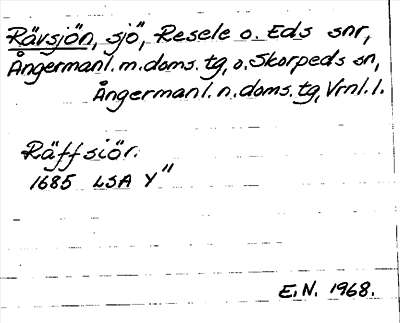 Rävsjön, sjö, Resele o. Eds snr,
Ångermanl. m. doms. tg, o. Skorpeds sn,
Ångermanl. n. doms. tg, Vrnl. l.
Räffsiör.
1685 LSA Y"
E.N. 1968.